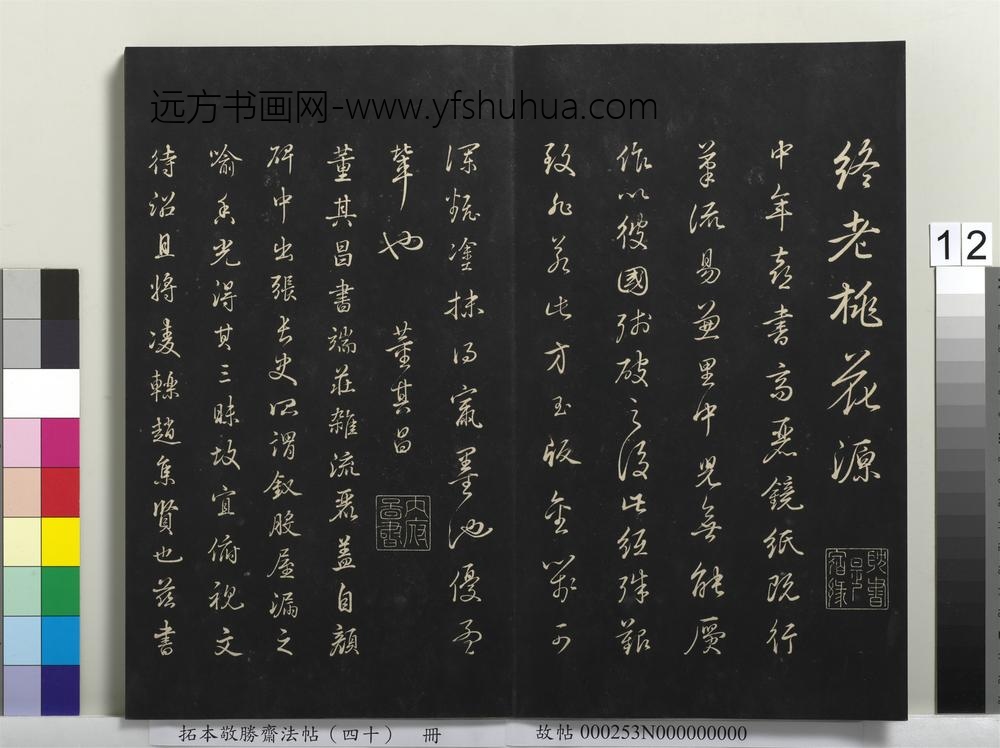 远方书画网-www.yfshuhua.com
終老桃花源
中年喜書高麗鏡紙既行
筆流易兼里中兒無能贗
作以彼國殘破之後此紙殊艱
致非若此方玉版金箋可
塗抹墨池優孟
輩也
董其昌
董其昌書端莊雜流麗蓋自顏
碑中出張長史所謂釵股屋漏之
喻香光得其三昧故宜俯視文
待詔且將凌轢趙集賢也茲書
12
拓本敬勝齋法帖（四十） 冊
故帖 000253N000000000